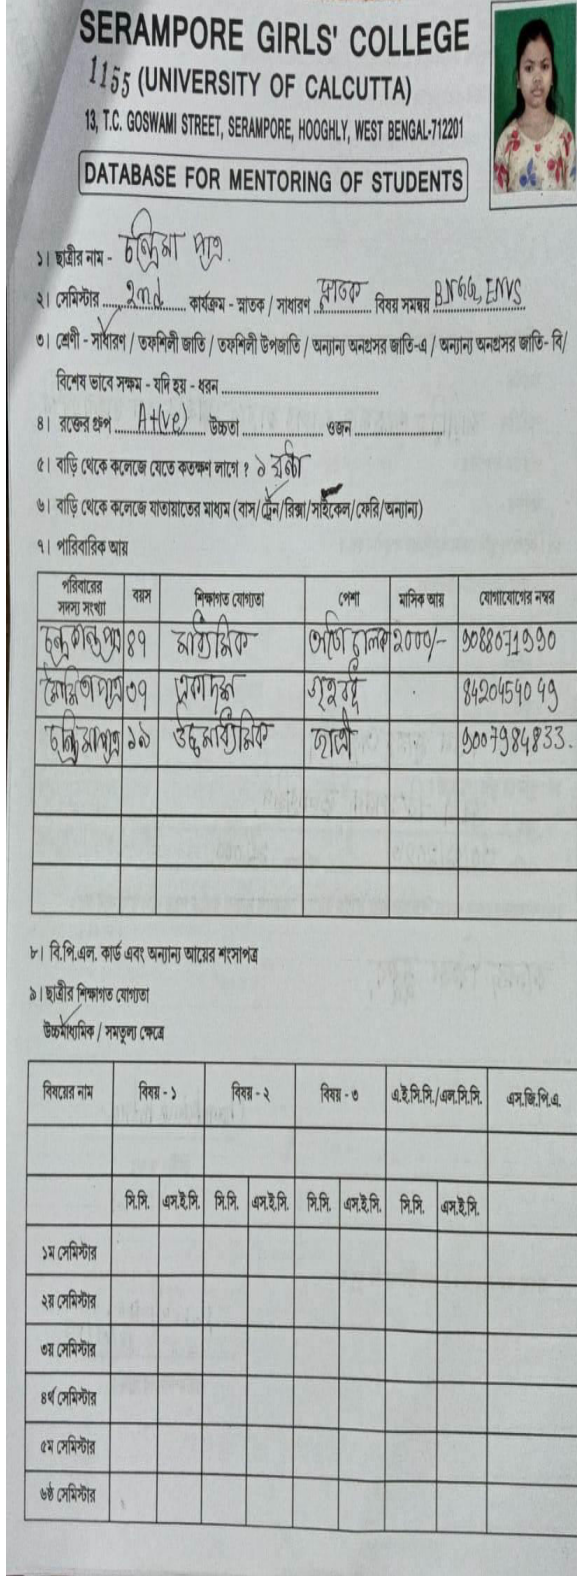 SERAMPORE GIRLS' COLLEGE
1155 (UNIVERSITY OF CALCUTTA)
13, T.C. GOSWAMI STREET, SERAMPORE, HOOGHLY, WEST BENGAL-712201
DATABASE FOR MENTORING OF STUDENTS
১। ছাত্রীর নাম - চন্দ্রিমা পাত্র.
২। সেমিস্টার 2nd কার্যক্রম - স্নাতক / সাধারণ স্নাতক বিষয় সমন্বয় BNGG, ENVS
৩। শ্রেণী - সাধারণ / তফশিলী জাতি / তফশিলী উপজাতি / অন্যান্য অনগ্রসর জাতি-এ / অন্যান্য অনগ্রসর জাতি- বি/
বিশেষ ভাবে সক্ষম - যদি হয় - ধরন
৪। রক্তের গ্রুপ A+(ve) উচ্চতা ওজন
৫। বাড়ি থেকে কলেজে যেতে কতক্ষণ লাগে ? ১ ঘন্টা
৬। বাড়ি থেকে কলেজে যাতায়াতের মাধ্যম (বাস/ট্রেন/রিক্সা/সাইকেল/ফেরি/অন্যান্য)
৭। পারিবারিক আয়
পরিবারের সদস্য সংখ্যা বয়স শিক্ষাগত যোগ্যতা পেশা মাসিক আয় যোগাযোগের নম্বর
চন্দ্রকান্ত পাত্র ৪৭ মাধ্যমিক চালক ২০০০/- 9088071990
পাত্র ৩৭ একাদশ গৃহবধূ 8420454049
চন্দ্রিমা পাত্র ১৯ উচ্চমাধ্যমিক ছাত্রী 9007984833.
৮। বি.পি.এল. কার্ড এবং অন্যান্য আয়ের শংসাপত্র
৯। ছাত্রীর শিক্ষাগত যোগ্যতা
উচ্চমাধ্যমিক / সমতুল্য ক্ষেত্রে
বিষয়ের নাম বিষয় - ১ বিষয় - ২ বিষয় - ৩ এ.ই.সি.সি./এল.সি.সি. এস.জি.পি.এ.
সি.সি. এস.ই.সি. সি.সি. এস.ই.সি. সি.সি. এস.ই.সি. সি.সি. এস.ই.সি.
১ম সেমিস্টার
২য় সেমিস্টার
৩য় সেমিস্টার
৪র্থ সেমিস্টার
৫ম সেমিস্টার
৬ষ্ঠ সেমিস্টার